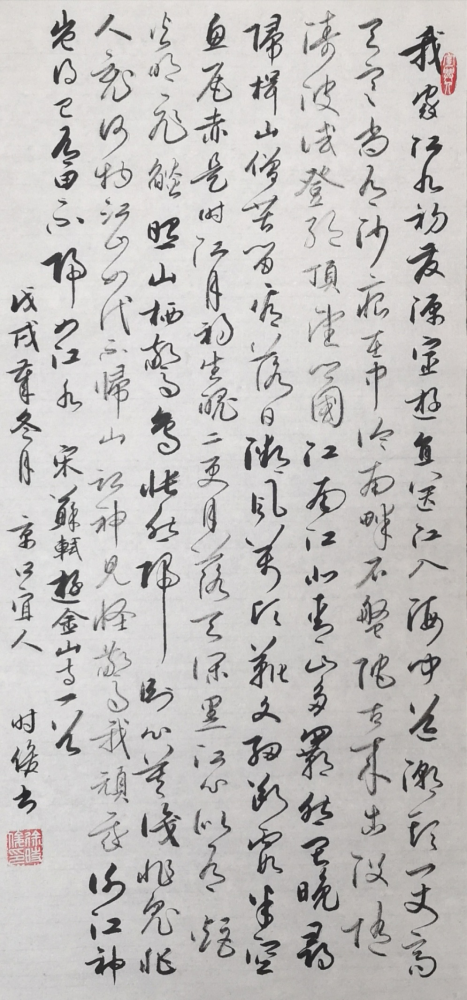 我家江水初发源宦遊直送江入海闻道潮头一丈高
天寒尚有沙痕在中泠南畔石盤陀古来出没随
涛波试登绝顶望乡國江南江北青山多羈愁畏晚尋
歸楫山僧苦留看落日微風万顷靴文细断霞半空
魚尾赤是时江月初生魄二更月落天深黑江心似有炬
火明飛焰照山栖驚鳥悵然归卧心莫識非鬼非
人竟何物江山如此不歸山江神見怪驚我頑我谢江神
岂得已有田不归如江水 宋蘇軾遊金山寺一首
戊戌年冬月 京口宜人 时俊书